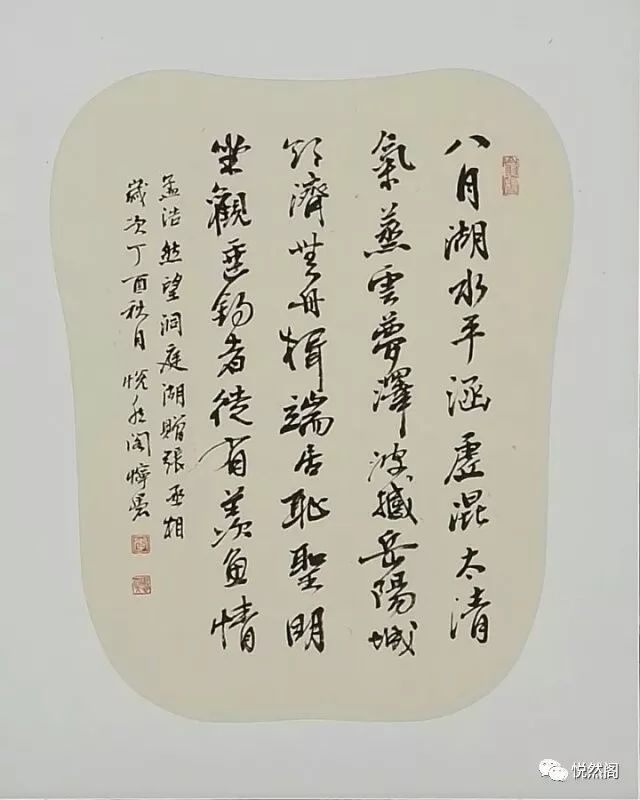 八月湖水平涵虛混太清
氣蒸雲夢澤波撼岳陽城
欲濟無舟楫端居恥聖明
坐觀垂釣者徒有羨魚情
孟浩然望洞庭湖贈張丞相
歲次丁酉秋月悅然閣
悦然阁